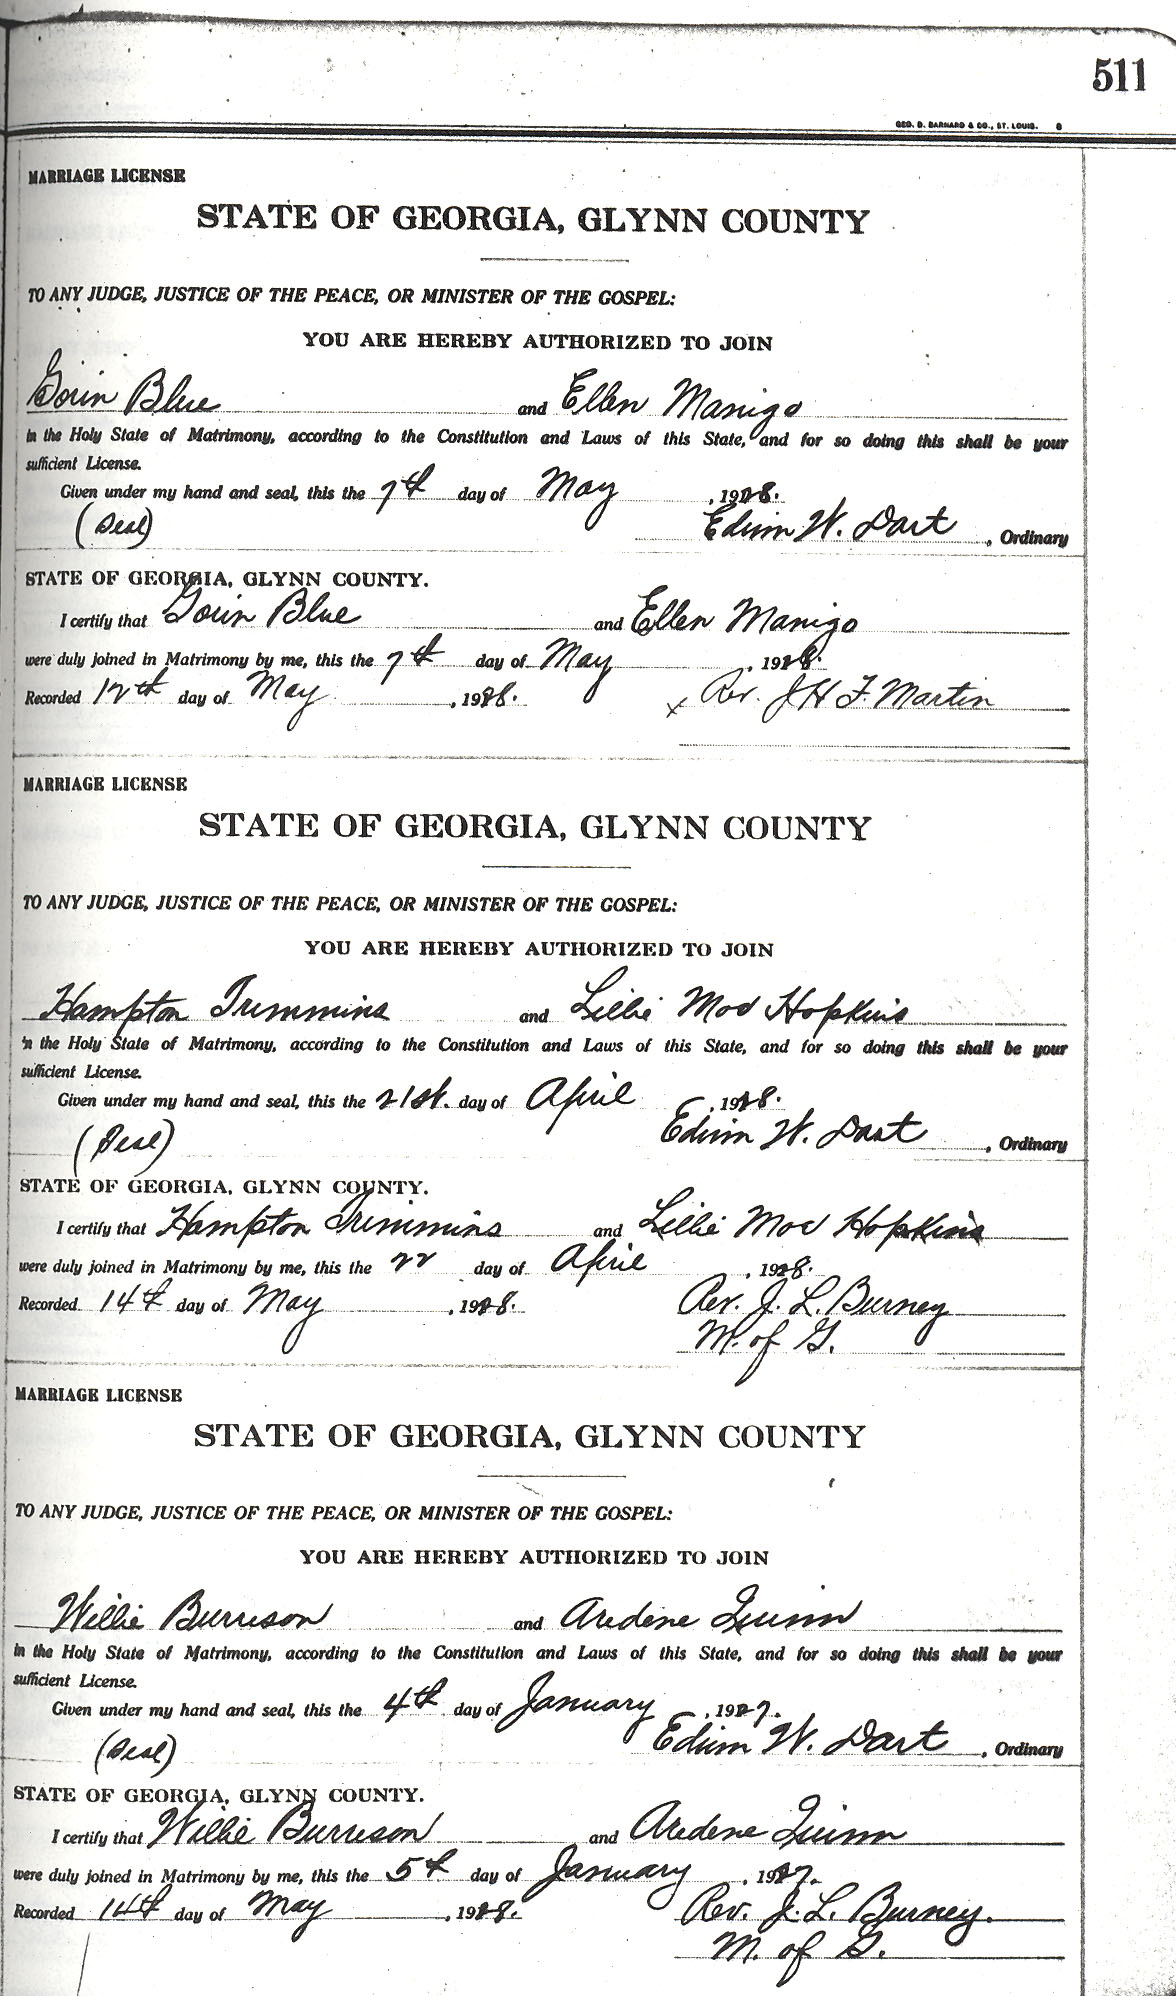 511
GEO. D. BARNARD & CO., ST. LOUIS. 8
MARRIAGE LICENSE
STATE OF GEORGIA, GLYNN COUNTY
TO ANY JUDGE, JUSTICE OF THE PEACE, OR MINISTER OF THE GOSPEL:
YOU ARE HEREBY AUTHORIZED TO JOIN
Gorin Blue and Ellen Manigo
in the Holy State of Matrimony, according to the Constitution and Laws of this State, and for so doing this shall be your
sufficient License.
Given under my hand and seal, this the 7th day of May, 1928.
(Seal) Edwin W. Dart, Ordinary
STATE OF GEORGIA, GLYNN COUNTY.
I certify that Gorin Blue and Ellen Manigo
were duly joined in Matrimony by me, this the 7th day of May, 1928.
Recorded 12th day of May, 1928. x Rev. J H F. Martin
MARRIAGE LICENSE
STATE OF GEORGIA, GLYNN COUNTY
TO ANY JUDGE, JUSTICE OF THE PEACE, OR MINISTER OF THE GOSPEL:
YOU ARE HEREBY AUTHORIZED TO JOIN
Hampton Trimmins and Lillie Mod Hopkins
in the Holy State of Matrimony, according to the Constitution and Laws of this State, and for so doing this shall be your
sufficient License.
Given under my hand and seal, this the 21st. day of April, 1928.
(Seal) Edwin W. Dart, Ordinary
STATE OF GEORGIA, GLYNN COUNTY.
I certify that Hampton Trimmins and Lillie Mod Hopkins
were duly joined in Matrimony by me, this the 22 day of April, 1928.
Recorded 14th day of May, 1928. Rev. J. L. Burney
M. of G.
MARRIAGE LICENSE
STATE OF GEORGIA, GLYNN COUNTY
TO ANY JUDGE, JUSTICE OF THE PEACE, OR MINISTER OF THE GOSPEL:
YOU ARE HEREBY AUTHORIZED TO JOIN
Willie Burrison and Aredene Quinn
in the Holy State of Matrimony, according to the Constitution and Laws of this State, and for so doing this shall be your
sufficient License.
Given under my hand and seal, this the 4th day of January, 1927.
(Seal) Edwin W. Dart, Ordinary
STATE OF GEORGIA, GLYNN COUNTY.
I certify that Willie Burrison and Aredene Quinn
were duly joined in Matrimony by me, this the 5th day of January, 1927.
Recorded 14th day of May, 1928. Rev. J. L. Burney.
M. of G.